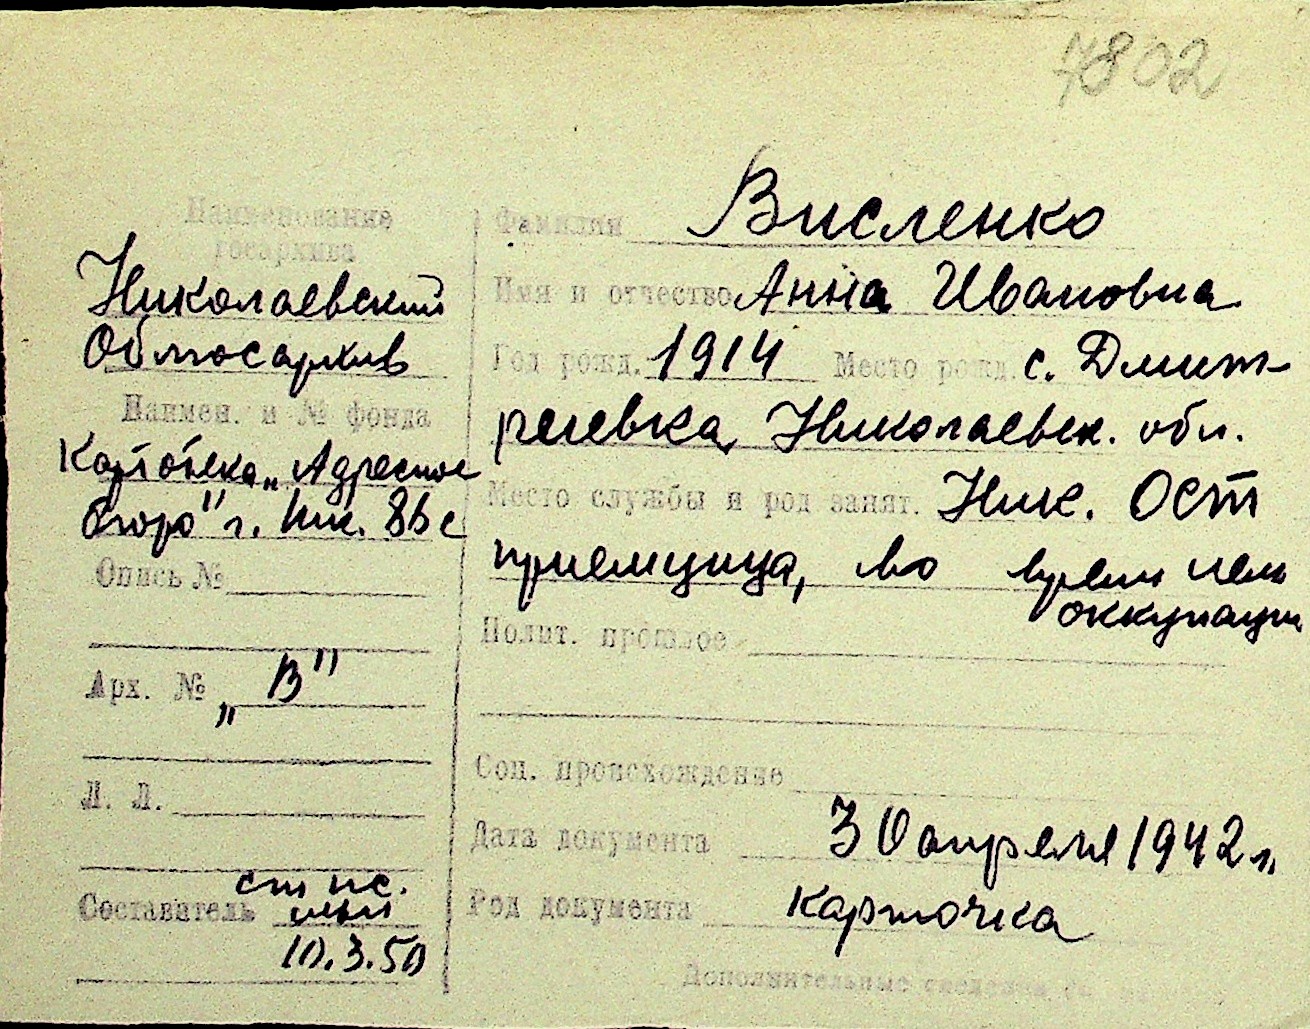 7802
Наименование
госархива
Николаевский
Облгосархив
Наимен. и № фонда
Картотека „Адресное
бюро" г. Ник.
Опись №
Арх. № „В"
Л. Л.
Составитель
10.3.50
Фамилия Висленко
Имя и отчество Анна Ивановна
Год рожд. 1914 Место рожд. с. Дмит-
риевка, Николаевск. обл.
Место службы и род занят. Ник. Ост
приемщица, во время нем
оккупации
Полит. прошлое
Соц. происхождение
Дата документа 30 апреля 1942 г.
Род документа карточка
Дополнительные сведения